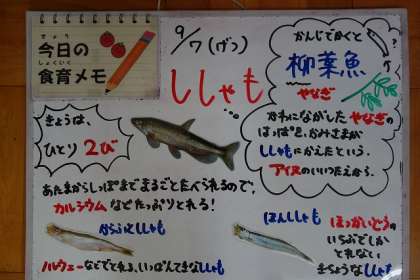 きょう
今日の
しょくいく
食育メモ
9/7(げつ)
ししゃも
かんじでかくと
柳葉魚
やなぎ
かわにながした やなぎの
はっぱを、かみさまが
ししゃもにかえたという、
アイヌのいいつたえから。
きょうは、
ひとり 2び
あたまからしっぽまでまるごとたべられるので、
カルシウムなどたっぷりとれる!
からふとししゃも
ノルウェーなどでとれる、いっぱんてきなししゃも
ほんししゃも
ほっかいどうの
いちぶでしか
とれない、
きちょうなししゃも